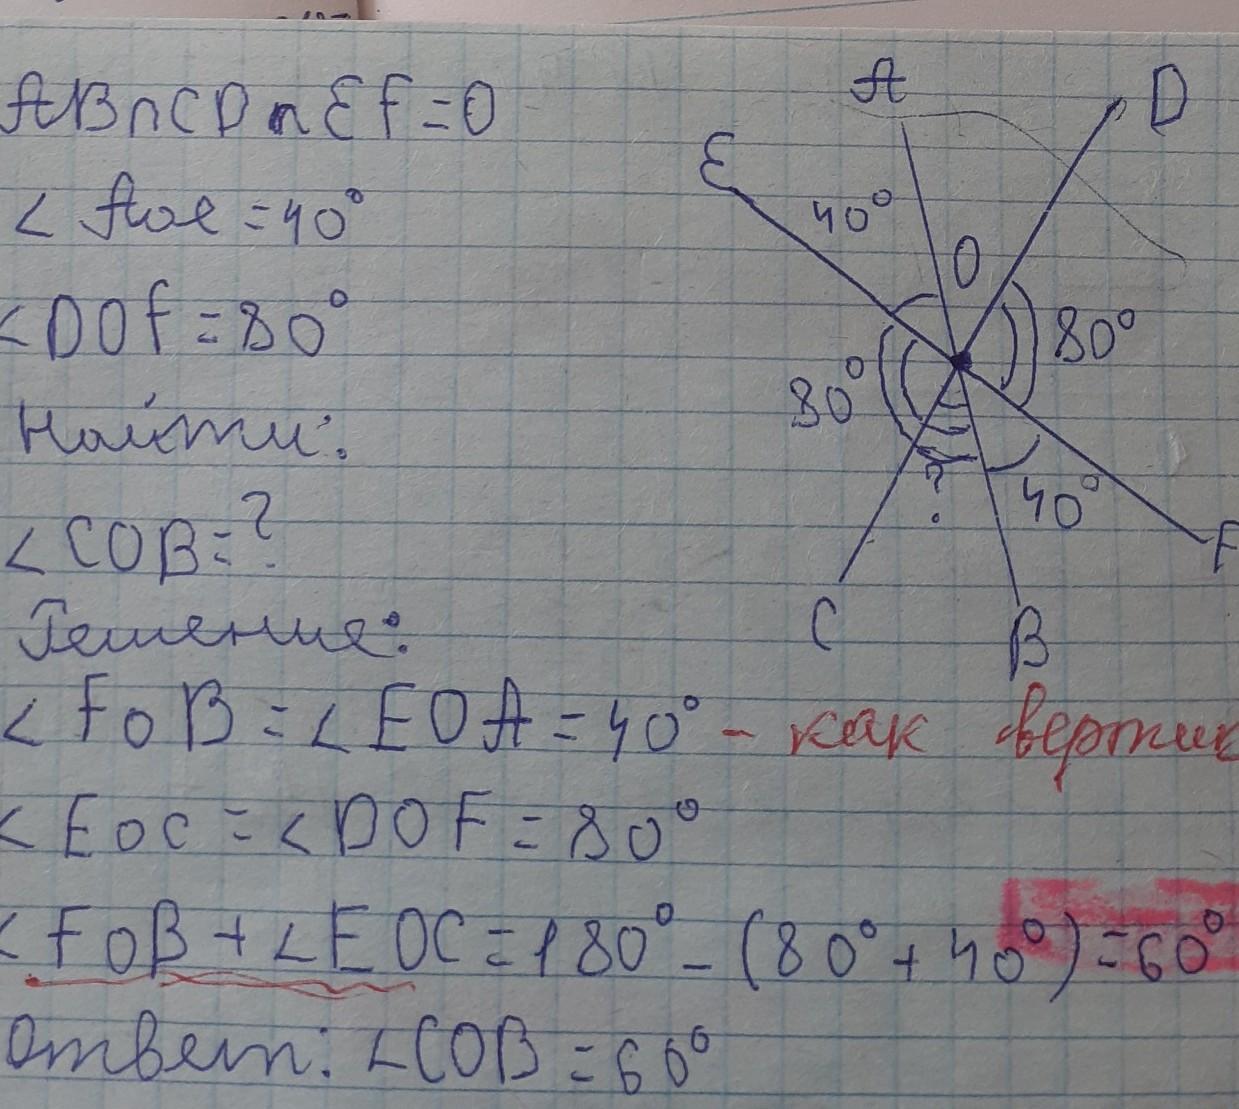 AB∩CD∩EF=O
< Aoe =40°
<DOF=80°
Найти:
<COB=?
Решение:
<FOB=<EOA=40° - как вертик
<EOC=<DOF=80°
<FOB+<EOC=180°-(80°+40°)=60°
Ответ: <COB=60°
A
D
E
40°
O
80°
80°
?
40°
F
C
B